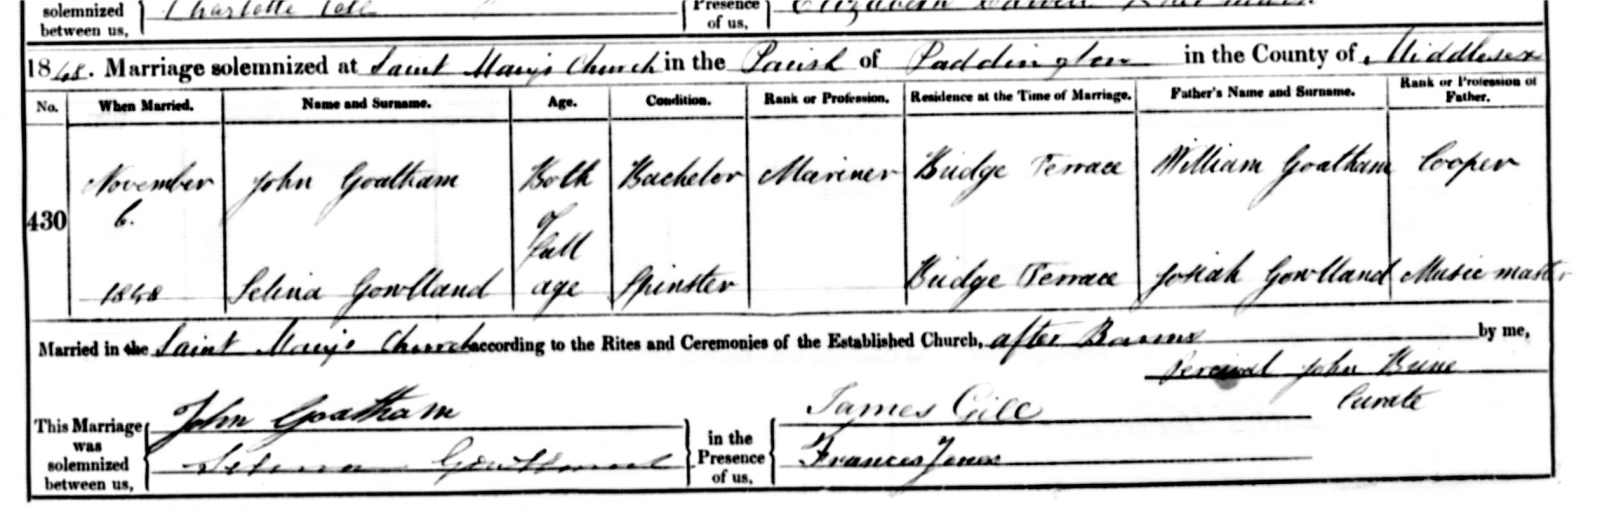 solemnized between us, Charlotte Presence of us, Elizabeth
1848. Marriage solemnized at Saint Mary's Church in the Parish of Paddington in the County of Middlesex
No. When Married. Name and Surname. Age. Condition. Rank or Profession. Residence at the Time of Marriage. Father's Name and Surname. Rank or Profession of Father.
430 November 6. 1848 John Goatham Both of full age Bachelor Mariner Bridge Terrace William Goatham Cooper
Selina Gowlland Spinster Bridge Terrace Josiah Gowlland Music master
Married in the Saint Mary's Church according to the Rites and Ceremonies of the Established Church, after Banns by me,
Percival John Curate
This Marriage was solemnized between us, John Goatham Selina Gowlland in the Presence of us, James Gill Frances Jones